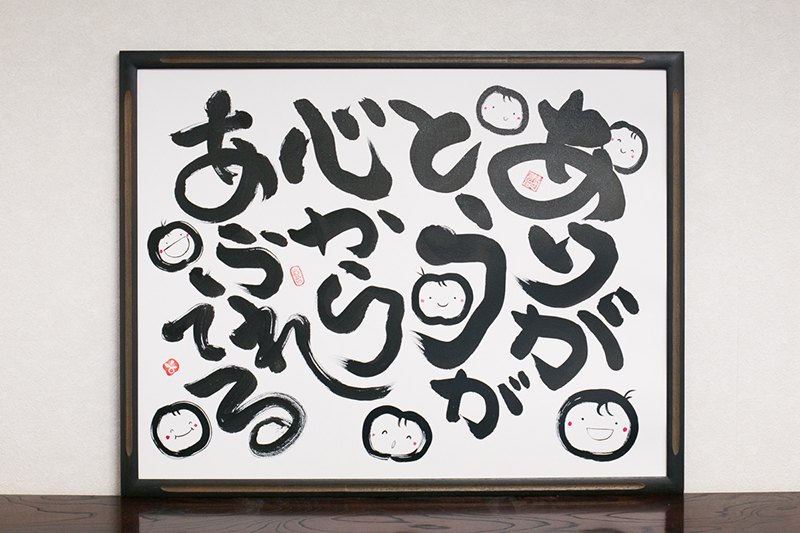 ありが
とうが
心から
あふれてる